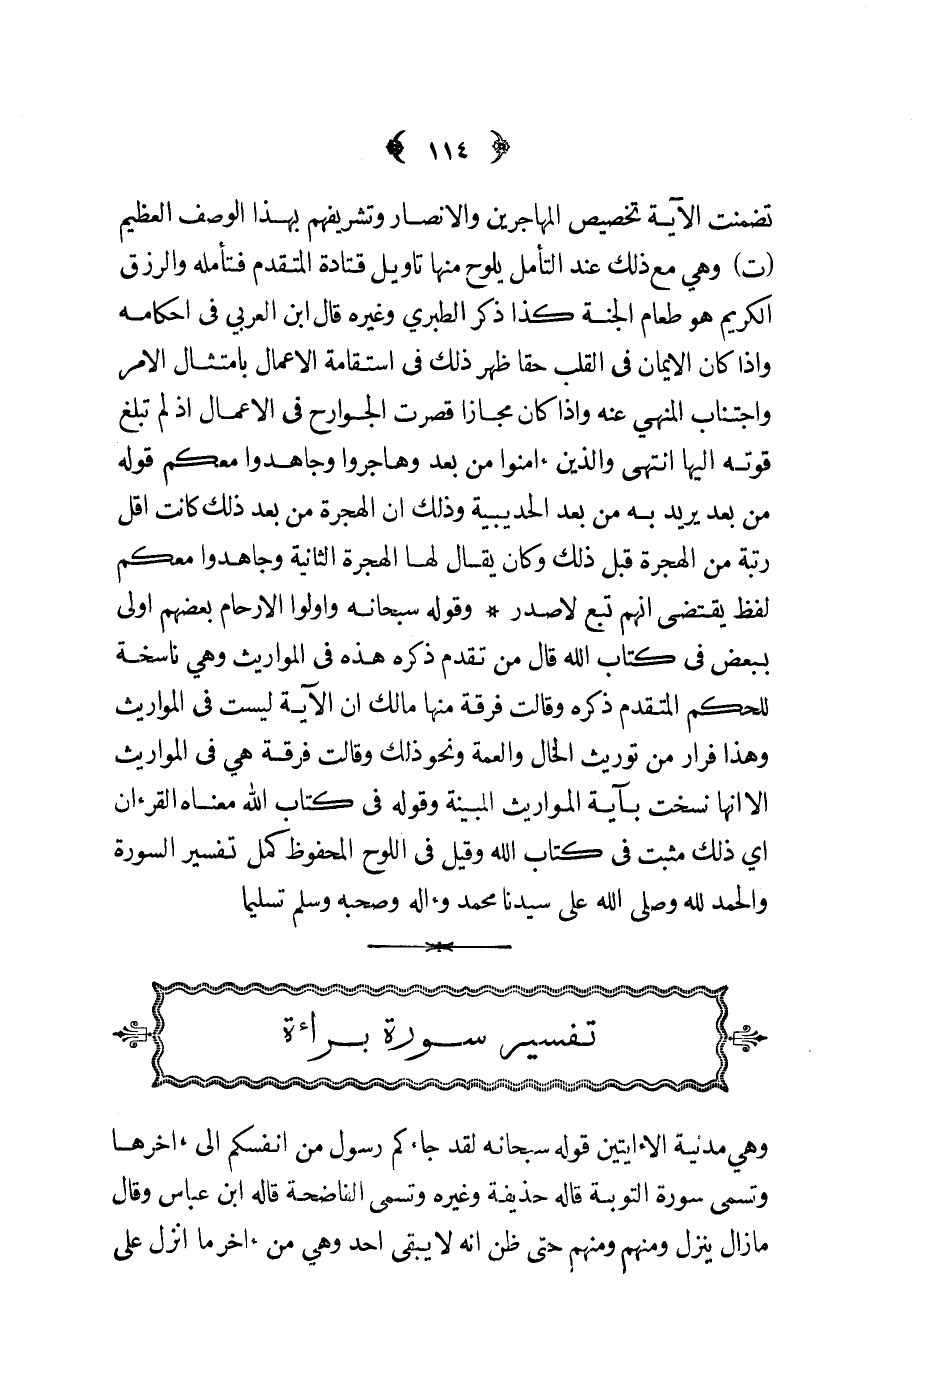 ﴿ ١١٤ ﴾
تضمنت الآيـة تخصيص المهاجرين والانصـار وتشريفهم بهـذا الوصف العظيم
(ت) وهي مع ذلك عند التأمل يلوح منها تاويـل قـتادة المتقدم فـتأمله والرزق
الكريم هو طعام الجنـة كذا ذكر الطبري وغيره قال ابن العربي فى احكامـه
واذا كان الايمان فى القلب حقا ظهر ذلك فى استـقامة الاعمال بامتـثـال الامر
واجتـناب المنهي عنه واذا كان مجـازا قصرت الجـوارح فى الاعمـال اذ لم تبلغ
قوتـه اليها انـتهى والذين ءامنوا من بعد وهـاجروا وجاهـدوا معكم قوله
من بعد يريد بـه من بعد الحديبية وذلك ان الهجرة من بعد ذلك كانت اقل
رتبة من الهجرة قبل ذلك وكان يقـال لهـا الهجرة الثانية وجاهـدوا معكم
لفظ يقـتضى انهم تبع لاصدر * وقوله سبحانـه واولوا الارحام بعضهم اولى
ببعض فى كتاب الله قال من تـقدم ذكره هـذه فى المواريث وهي ناسخـة
للحكم المتـقدم ذكره وقالت فرقة منها مالك ان الآيـة ليست فى المواريث
وهذا فرار من توريث الخال والعمة ونحو ذلك وقالت فرقـة هي فى المواريث
الا انها نسخت بـآيـة المواريث المبينة وقوله فى كتاب الله معنـاه القرءان
اي ذلك مثبت فى كتاب الله وقيل فى اللوح المحفوظ كمل تـفسير السورة
والحمد لله وصلى الله على سيدنا محمد وءاله وصحبه وسلم تسليما
تـفسير سـورة بـراءة
وهي مدنـية الا ءايتين قوله سبحانه لقد جاءكم رسول من انـفسكم الى ءاخرهـا
وتسمى سورة التوبـة قاله حذيفـة وغيره وتسمى الفاضحة قاله ابن عباس وقال
مازال ينزل ومنهم ومنهم حتى ظن انه لا يـبقى احد وهي من ءاخر ما انزل على